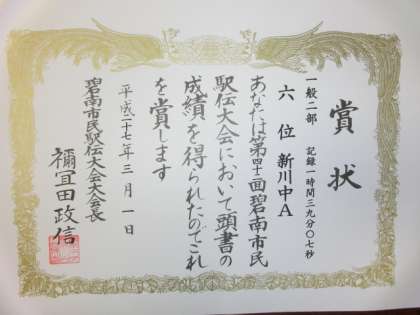 賞状
一般二部　記録一時間三九分〇七秒
六位　新川中A
あなたは第四十二回碧南市民
駅伝大会において頭書の
成績を得られたのでこれ
を賞します
平成二十七年三月一日
碧南市民駅伝大会大会長
禰冝田政信